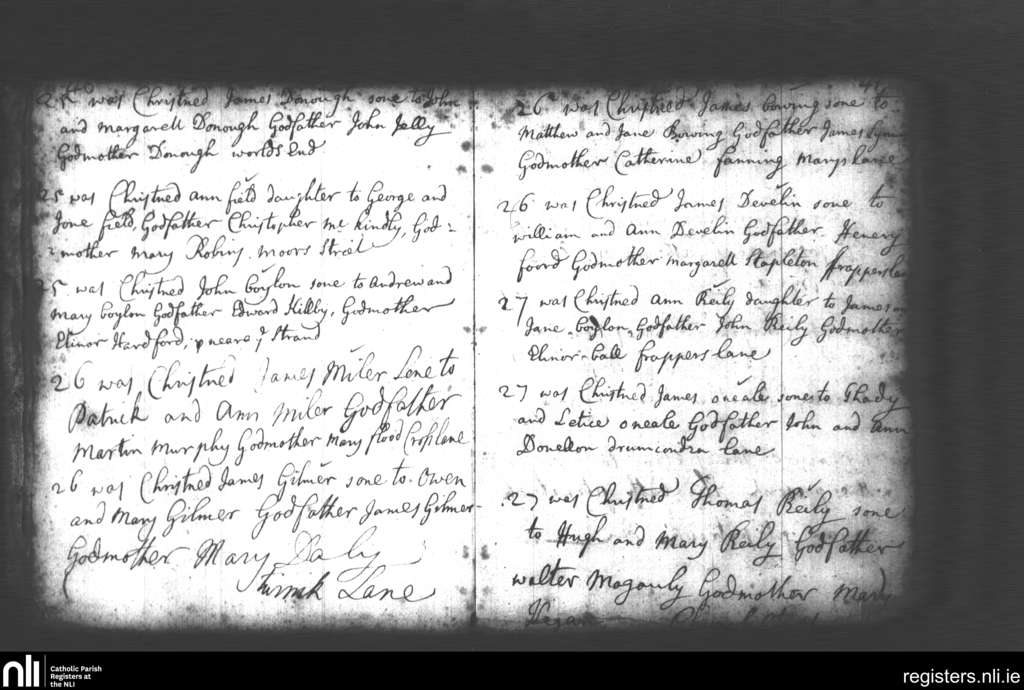 25 was Christned James Donough sone to John
and margarell Donough Godfather John Jelly
Godmother Donough worlds End
25 was Christned ann field daughter to George and
Jone field, Godfather Christopher mc kindly, God=
=mother mary Robins. moors Street
25 was Christned John boylon sone to Andrew and
mary boylon Godfather Edward Killby, Godmother
Elinor Hardford, neare ye Strand
26 was Christned James Miler Sone to
Patrick and Ann Miler Godfather
Martin Murphy Godmother Mary flood Cross lane
26 was Christned James Gilmer sone to Owen
and Mary Gilmer Godfather James Gilmer
Godmother Mary Daly
Lane
26 was Christned James bowing sone to
Matthew and Jane Bowing Godfather James
Godmother Catherine fanning Marys lane
26 was Christned James Develin sone to
william and Ann Develin Godfather Henery
foord Godmother margarell Stapleton frappers lane
27 was Christned Ann Reily daughter to James
Jane boylon Godfather John Reily Godmother
Elinor ball frappers lane
27 was Christned James oneale sone to Thady
and Letice oneale Godfather John and Ann
Donellon drumcondra lane
27 was Christned Thomas Reily sone
to Hugh and Mary Reily Godfather
walter Magauly Godmother Mary
nli
Catholic Parish
Registers at
the NLI
registers.nli.ie